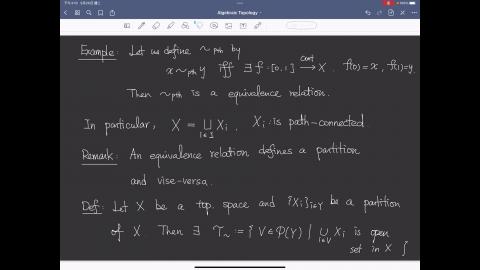 Algebraic Topology
Example: Let us define ~pth by
x ~pth y iff ∃ f: [0,1] cont→ X. f(0)=x, f(1)=y.
Then ~pth is a equivalence relation.
In particular, X = ⊔_{i∈I} Xi, Xi: is path-connected
Remark: An equivalence relation defines a partition
and vise-versa.
Def: Let X be a top. space and {Xi}i∈Y be a partition
of X. Then ∃ T~ := { V ∈ P(Y) | ∪_{i∈V} Xi is open
set in X }